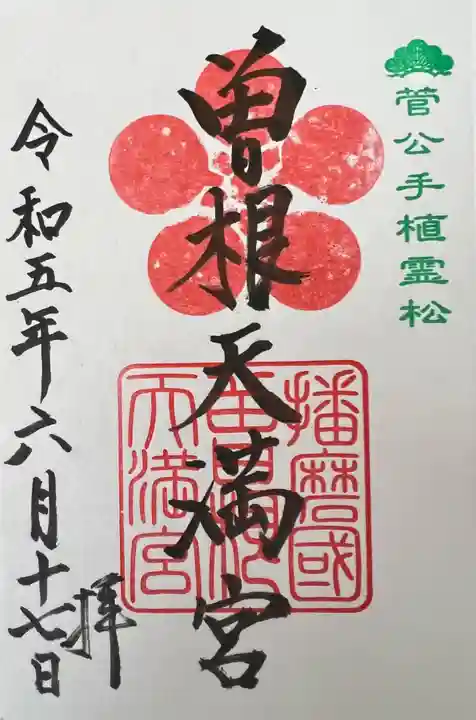 菅公手植霊松
曽根天満宮
播磨國
曽根
天満宮
令和五年六月十七日
拝